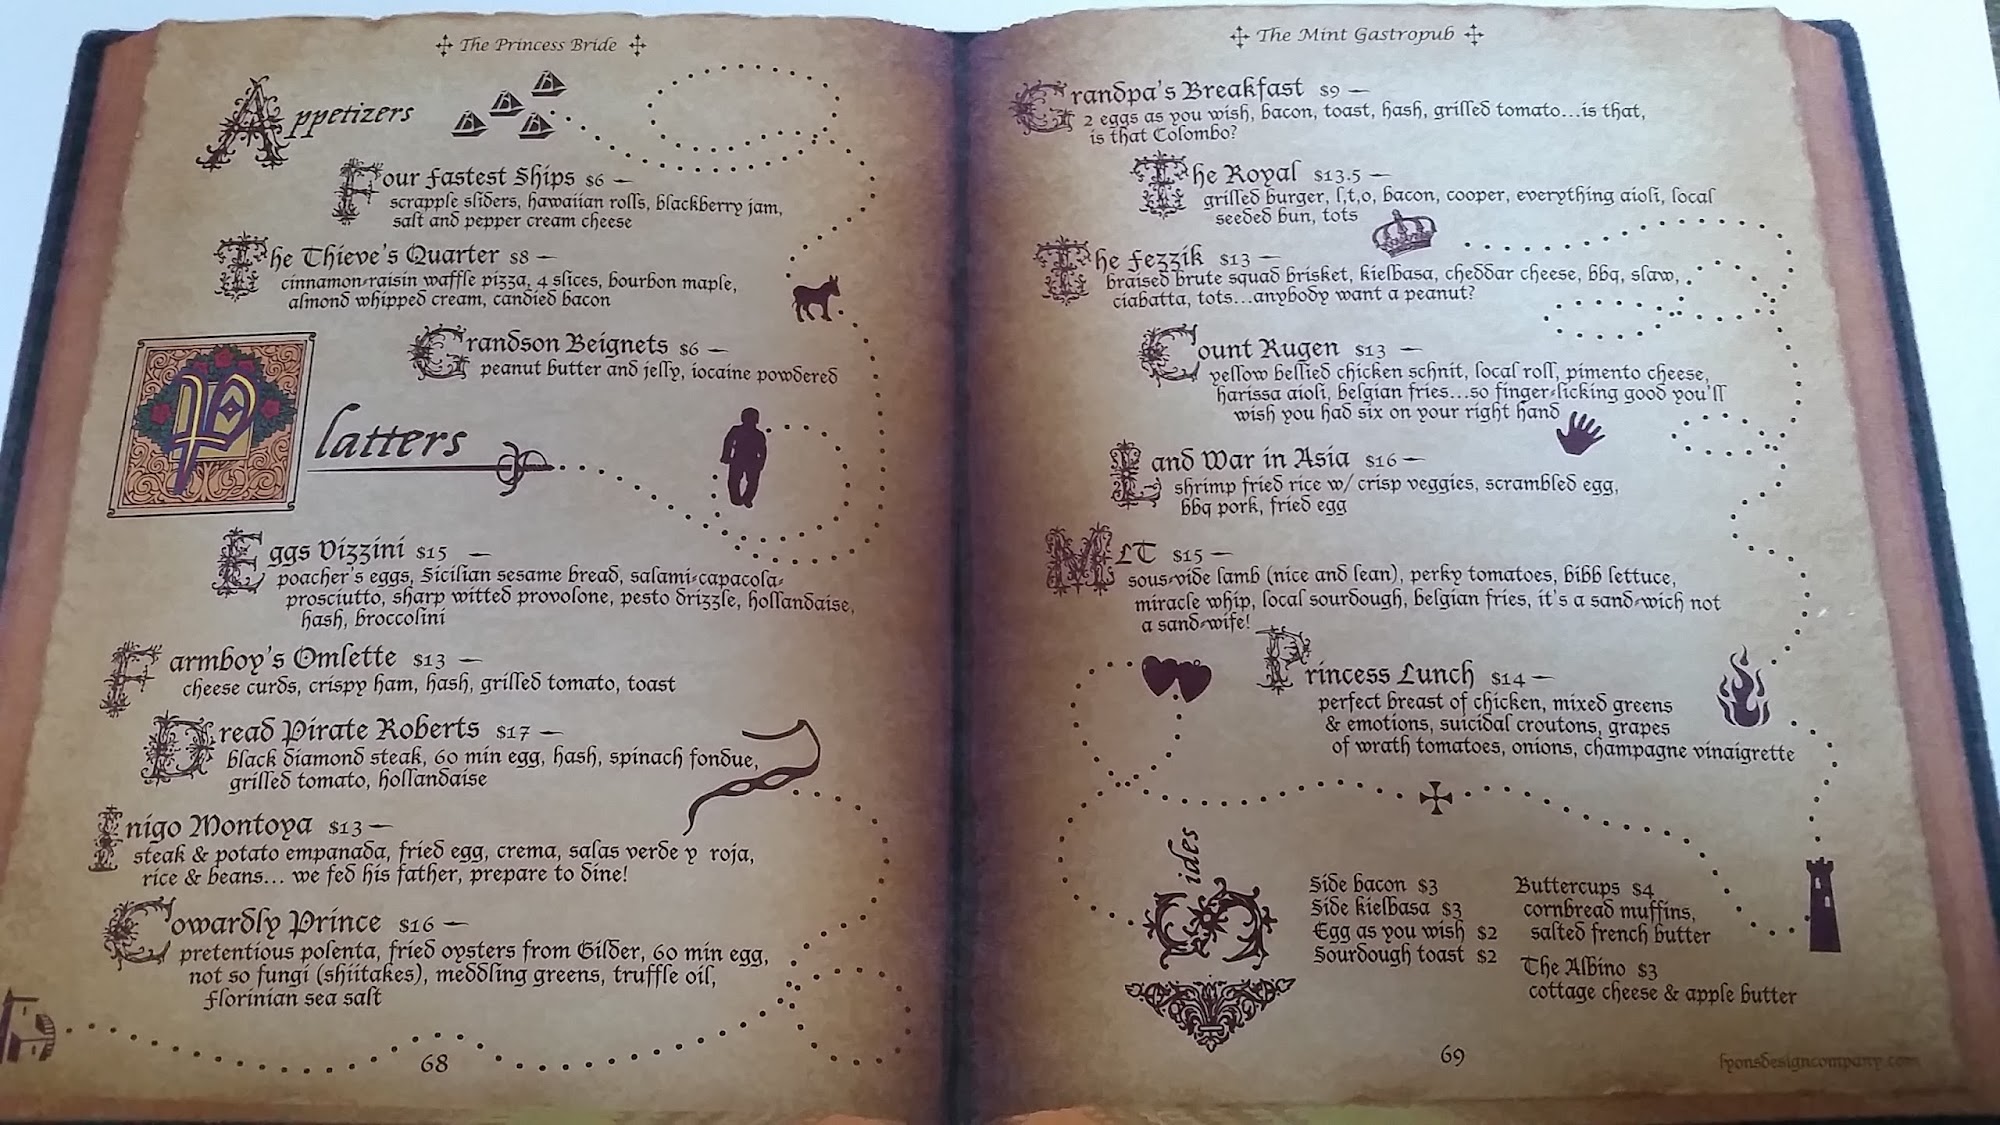 The Princess Bride
Appetizers
Four Fastest Ships $6 —
scrapple sliders, hawaiian rolls, blackberry jam,
salt and pepper cream cheese
The Thieve's Quarter $8 —
cinnamon-raisin waffle pizza, 4 slices, bourbon maple,
almond whipped cream, candied bacon
Grandson Beignets $6 —
peanut butter and jelly, iocaine powdered
Platters
Eggs Vizzini $15 —
poacher's eggs, Sicilian sesame bread, salami-capacola-
prosciutto, sharp witted provolone, pesto drizzle, hollandaise,
hash, broccolini
Farmboy's Omlette $13 —
cheese curds, crispy ham, hash, grilled tomato, toast
Dread Pirate Roberts $17 —
black diamond steak, 60 min egg, hash, spinach fondue,
grilled tomato, hollandaise
Inigo Montoya $13 —
steak & potato empanada, fried egg, crema, salas verde y roja,
rice & beans... we fed his father, prepare to dine!
Cowardly Prince $16 —
pretentious polenta, fried oysters from Gilder, 60 min egg,
not so fungi (shiitakes), meddling greens, truffle oil,
florinian sea salt
68
The Mint Gastropub
Grandpa's Breakfast $9 —
2 eggs as you wish, bacon, toast, hash, grilled tomato...is that,
is that Colombo?
The Royal $13.5 —
grilled burger, l,t,o, bacon, cooper, everything aioli, local
seeded bun, tots
The Fezzik $13 —
braised brute squad brisket, kielbasa, cheddar cheese, bbq, slaw,
ciabatta, tots...anybody want a peanut?
Count Rugen $13 —
yellow bellied chicken schnit, local roll, pimento cheese,
harissa aioli, belgian fries...so finger-licking good you'll
wish you had six on your right hand
Land War in Asia $16 —
shrimp fried rice w/ crisp veggies, scrambled egg,
bbq pork, fried egg
MLT $15 —
sous-vide lamb (nice and lean), perky tomatoes, bibb lettuce,
miracle whip, local sourdough, belgian fries, it's a sand-wich not
a sand-wife!
Princess Lunch $14 —
perfect breast of chicken, mixed greens
& emotions, suicidal croutons, grapes
of wrath tomatoes, onions, champagne vinaigrette
Sides
Side bacon $3
Side kielbasa $3
Egg as you wish $2
Sourdough toast $2
Buttercups $4
cornbread muffins,
salted french butter
The Albino $3
cottage cheese & apple butter
69
lyonsdesigncompany.com